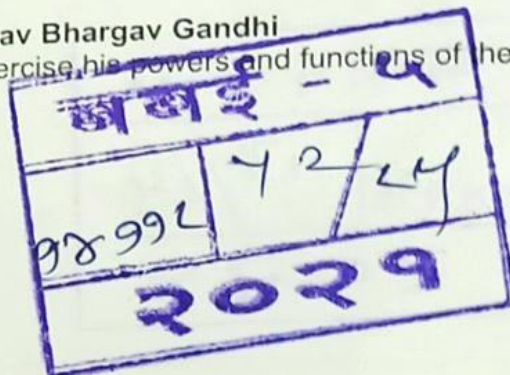 av Bhargav Gandhi
ercise his powers and functions of the
बबई - ५
१४११८ ५२/८५
२०२१